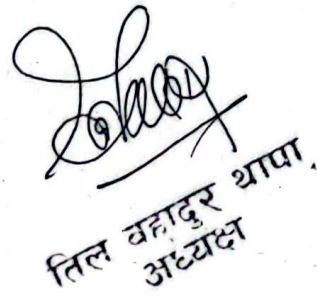 तिल वहादुर थापा,
अध्यक्ष